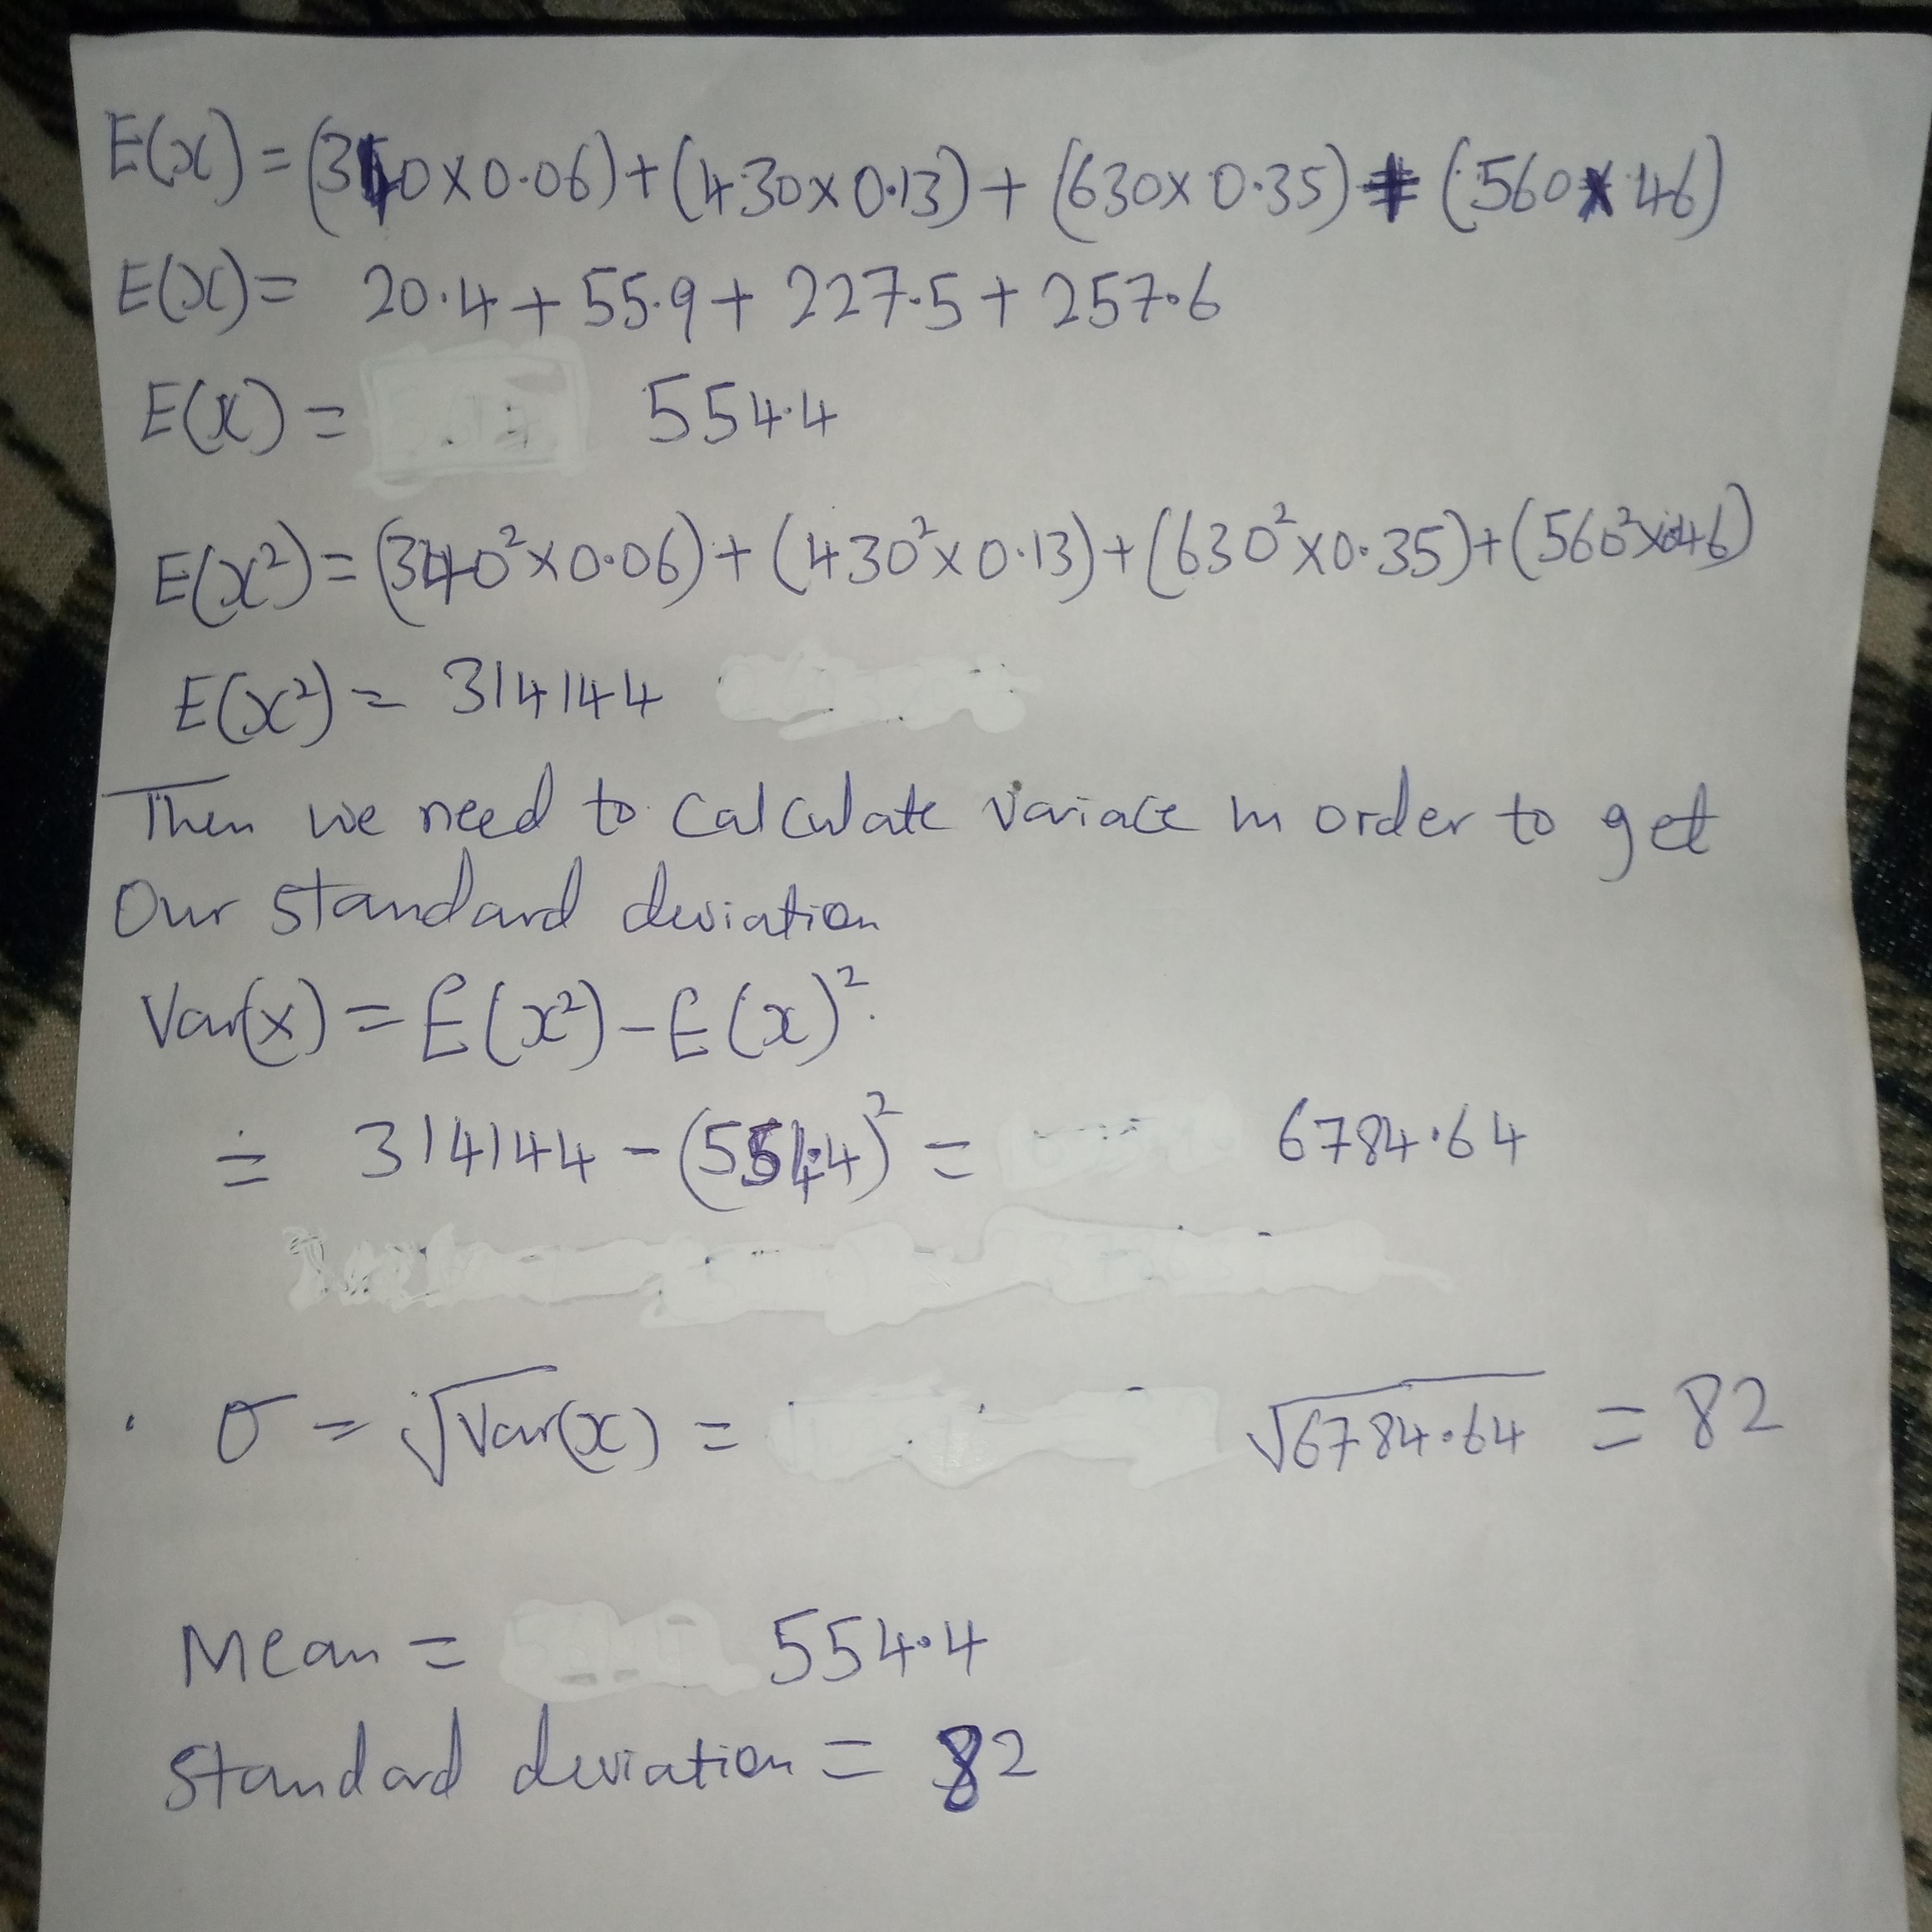 E(x) = (340 x 0.06) + (430 x 0.13) + (630 x 0.35) + (560 x .46)
E(x) = 20.4 + 55.9 + 227.5 + 257.6
E(x) = 554.4
E(x²) = (340² x 0.06) + (430² x 0.13) + (630² x 0.35) + (560² x 0.46)
E(x²) = 314144
Then we need to calculate variace in order to get
Our standard deviation
Var(x) = E(x²) - E(x)²
= 314144 - (554.4)² = 6784.64
σ = √Var(x) = √6784.64 = 82
Mean = 554.4
Standard deviation = 82